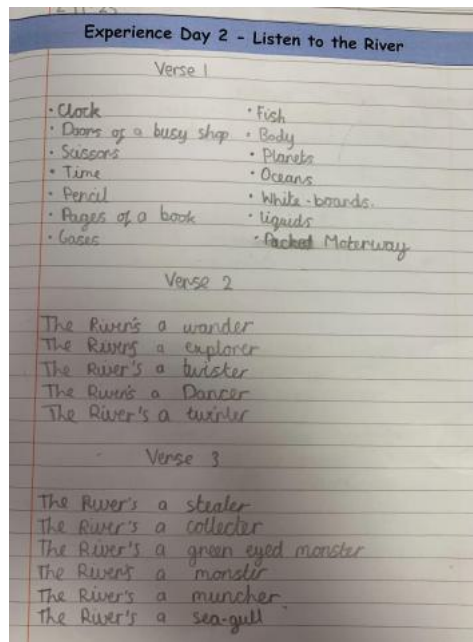 2-11-23
Experience Day 2 - Listen to the River
Verse 1
• Clock
• Doors of a busy shop
• Scissors
• Time
• Pencil
• Pages of a book
• Gases
• Fish
• Body
• Planets
• Oceans
• White-boards.
• liquids
• Packed Moterway
Verse 2
The River's a wander
The Rivers a explorer
The River's a twister
The River's a Dancer
The River's a twirler
Verse 3
The River's a stealer
The River's a collecter
The River's a green eyed monster
The River's a monstir
The River's a muncher
The River's a sea-gull